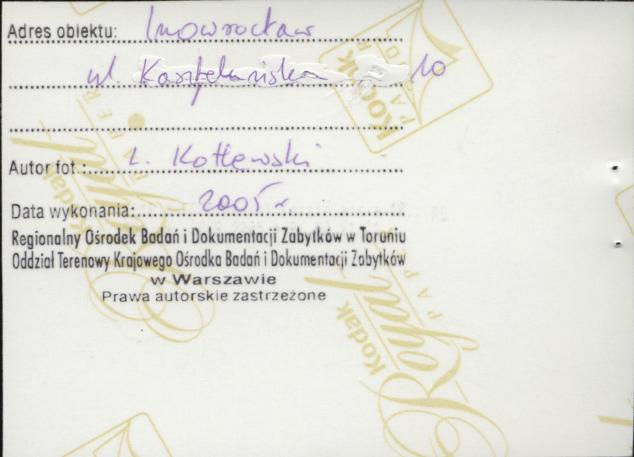 Adres obiektu: Inowrocław
ul. Kasztelańska 10
Autor fot.: Ł. Kotlewski
Data wykonania: 2005 r
Regionalny Ośrodek Badań i Dokumentacji Zabytków w Toruniu
Oddział Terenowy Krajowego Ośrodka Badań i Dokumentacji Zabytków
w Warszawie
Prawa autorskie zastrzeżone
Kodak
Royal
PAPER
Kodak
PAPER
Kodak
Royal
PAPER